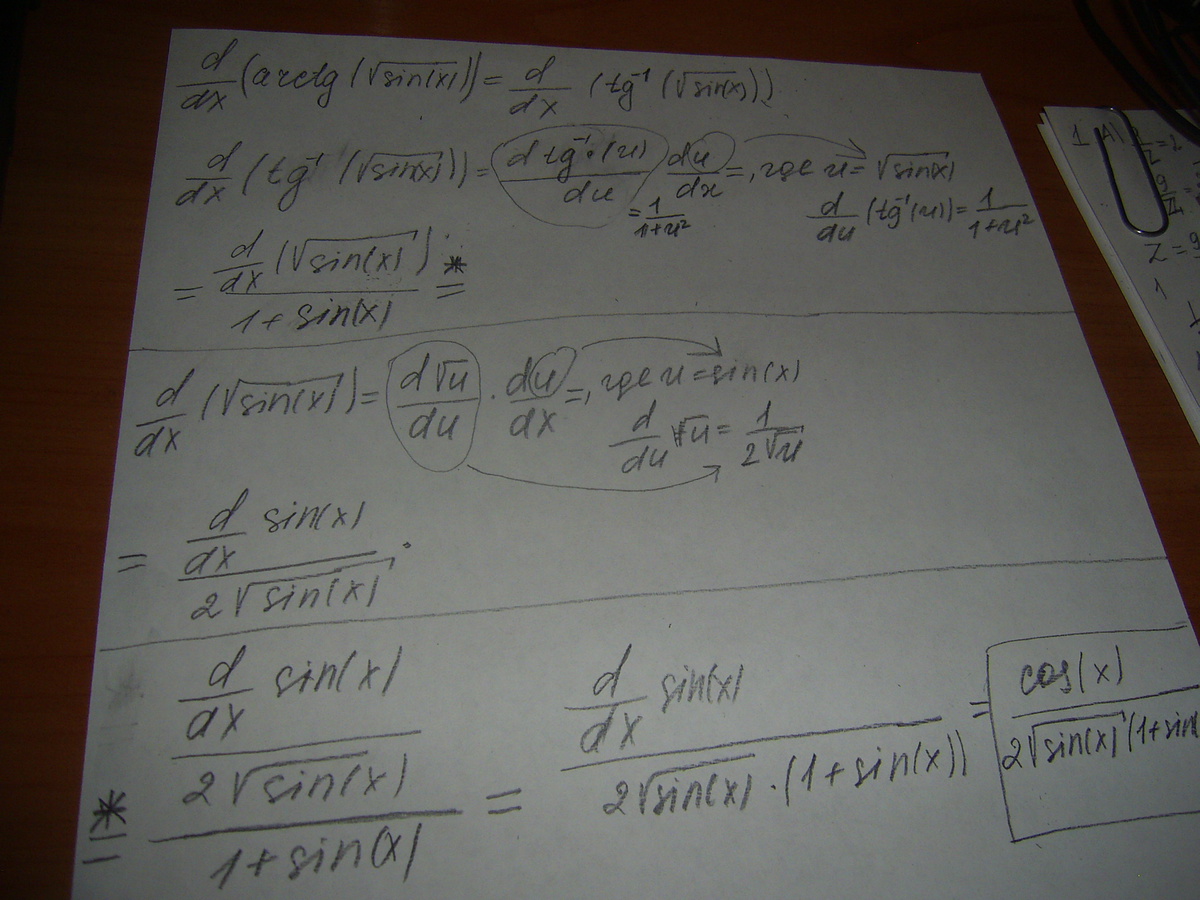 d/dx (arctg (√sin(x))) = d/dx (tg⁻¹ (√sin(x)))
d/dx (tg⁻¹ (√sin(x))) = d tg⁻¹·(u)/du · du/dx =, где u = √sin(x)
= 1/1+u²
d/du (tg⁻¹(u)) = 1/1+u²
= d/dx (√sin(x)) / 1 + sin(x) =*
d/dx (√sin(x)) = d√u/du · du/dx =, где u = sin(x)
d/du √u = 1/2√u
= d/dx sin(x) / 2√sin(x).
*= d/dx sin(x) / 2√sin(x) / 1 + sin(x) = d/dx sin(x) / 2√sin(x) · (1 + sin(x)) = cos(x) / 2√sin(x) (1+sin
1 A)
Z =
1